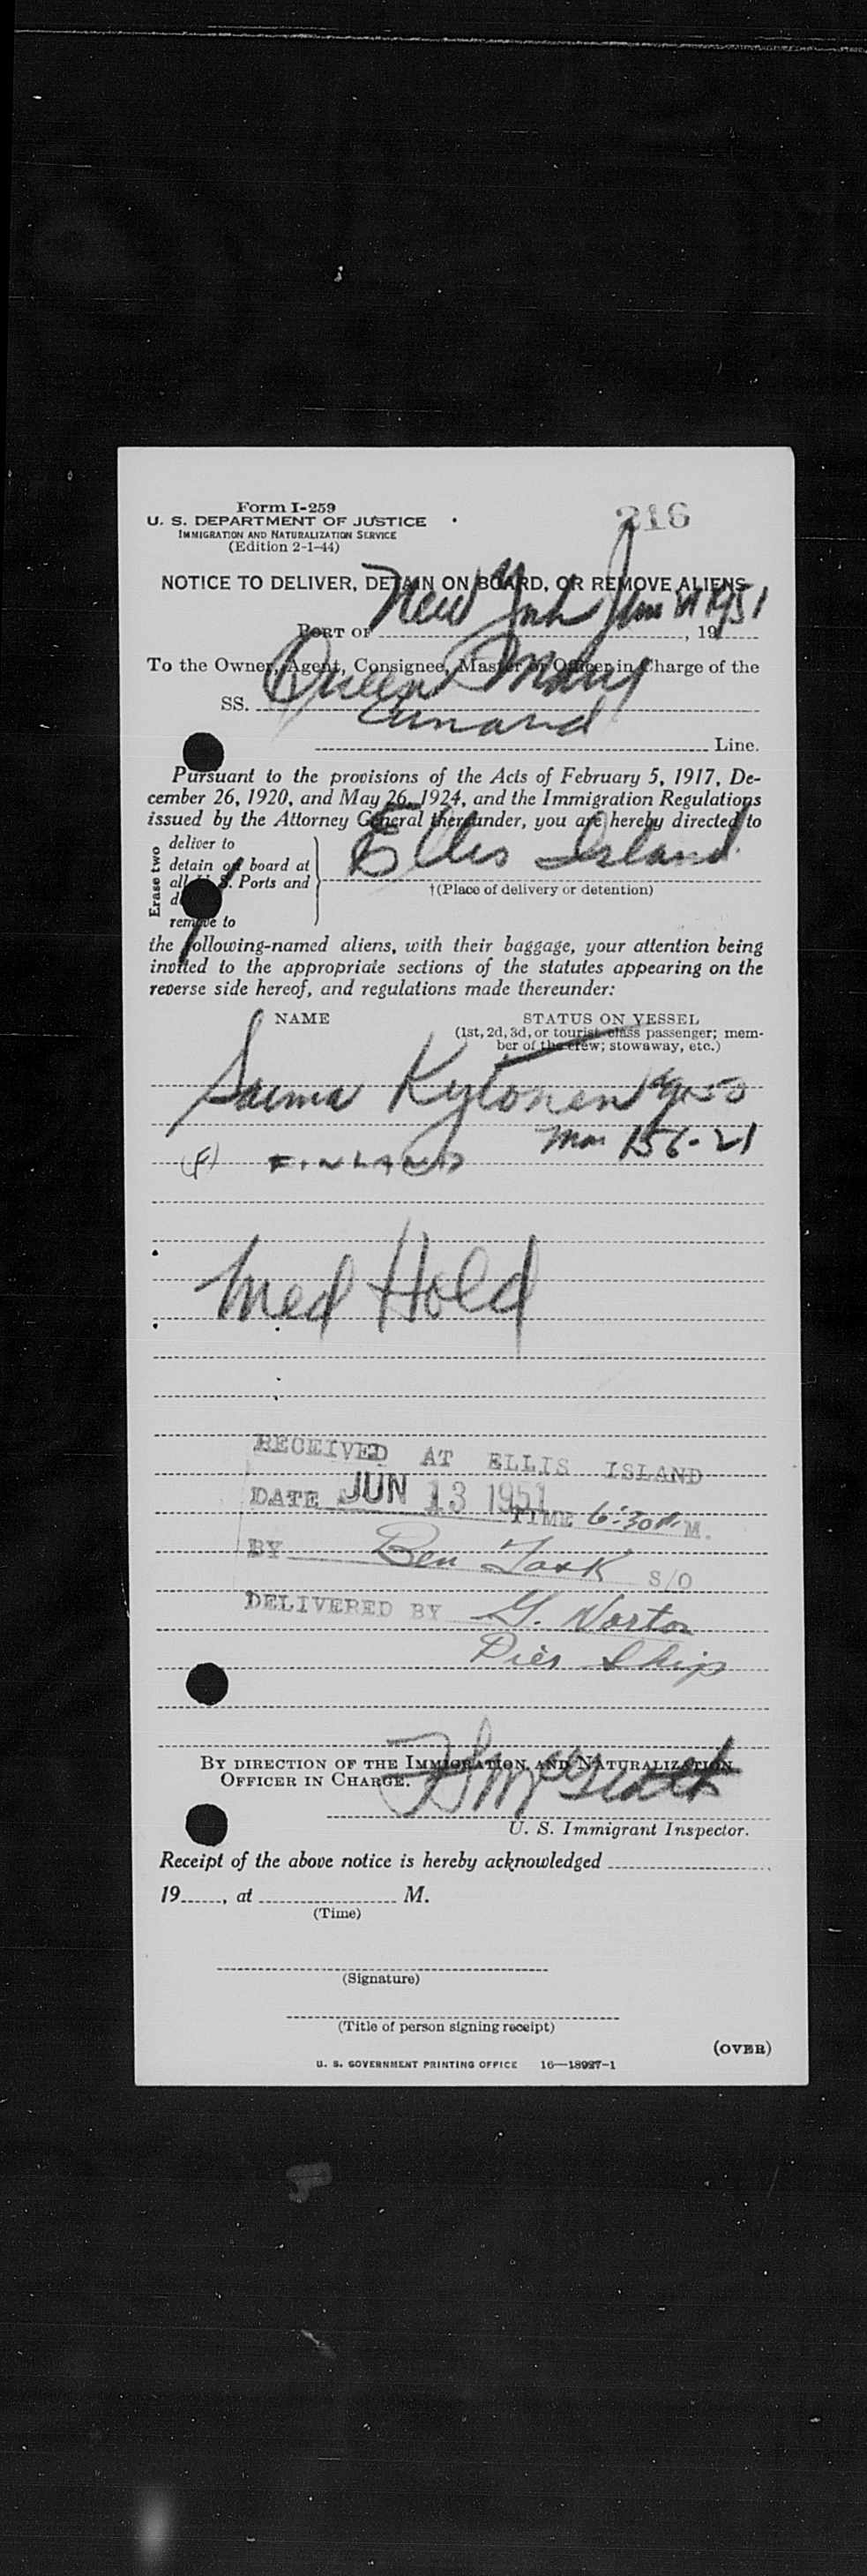 Form I-259
216
U. S. DEPARTMENT OF JUSTICE
IMMIGRATION AND NATURALIZATION SERVICE
(Edition 2-1-44)
NOTICE TO DELIVER, DETAIN ON BOARD, OR REMOVE ALIENS
PORT OF New York June 1951, 19
To the Owner, Agent, Consignee, Master or Officer in Charge of the
SS. Queen Mary
Cunard Line.
Pursuant to the provisions of the Acts of February 5, 1917, De-
cember 26, 1920, and May 26, 1924, and the Immigration Regulations
issued by the Attorney General thereunder, you are hereby directed to
Erase two
deliver to
detain on board at
all U. S. Ports and
remove to
Ellis Island
†(Place of delivery or detention)
the following-named aliens, with their baggage, your attention being
invited to the appropriate sections of the statutes appearing on the
reverse side hereof, and regulations made thereunder:
NAME
STATUS ON VESSEL
(1st, 2d, 3d, or tourist-class passenger; mem-
ber of the crew; stowaway, etc.)
Saima Kytonen 50
156-21
(F) FINLAND
Med Hold
RECEIVED AT ELLIS ISLAND
DATE JUN 13 1951 TIME 6:30 P. M.
BY Ben S/O
DELIVERED BY G. Norton
Pier Ship
BY DIRECTION OF THE IMMIGRATION AND NATURALIZATION
OFFICER IN CHARGE.
U. S. Immigrant Inspector.
Receipt of the above notice is hereby acknowledged
19, at M.
(Time)
(Signature)
(Title of person signing receipt)
(OVER)
U. S. GOVERNMENT PRINTING OFFICE 16—18927-1